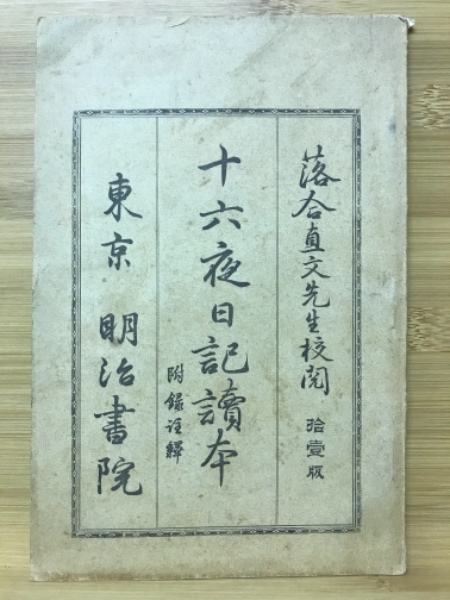 落合直文先生校閲 拾壹版
十六夜日記讀本
附錄註釋
東京 明治書院